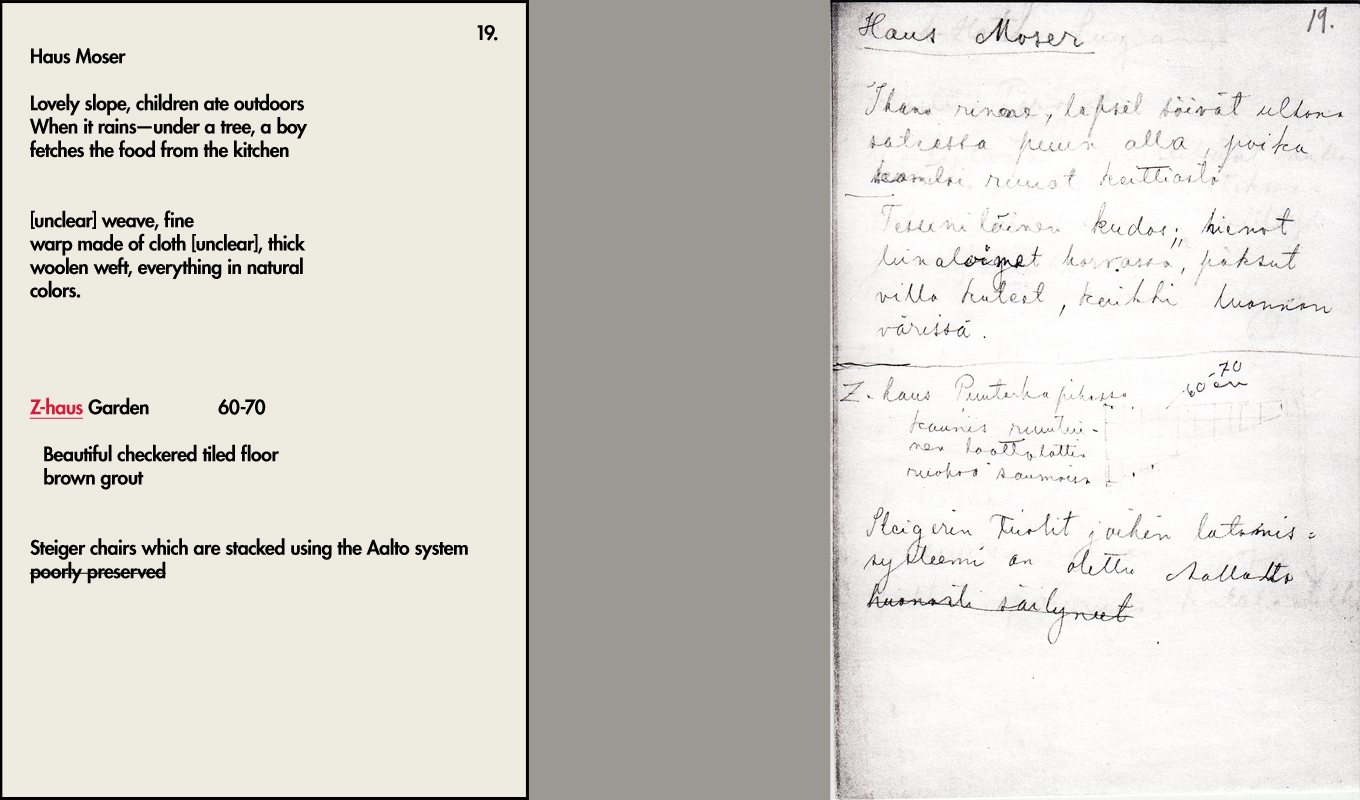 19.
Haus Moser
Lovely slope, children ate outdoors
When it rains—under a tree, a boy
fetches the food from the kitchen
[unclear] weave, fine
warp made of cloth [unclear], thick
woolen weft, everything in natural
colors.
Z-haus Garden 60-70
Beautiful checkered tiled floor
brown grout
Steiger chairs which are stacked using the Aalto system
poorly preserved
19.
Haus Moser
Ihana rinne, lapset söivät ulkona
sateessa puun alla, poika
ruuat keittiöstä
kudos; hienot
paksut
villa kuteet, kaikki luonnon
värissä.
Z-haus 60-70 cm
kaunis ruutui-
nen laattalattia
ruohoa saumoissa
Steigerin tuolit joihin latomis=
systeemi on otettu Aallolta
huonosti säilyneet